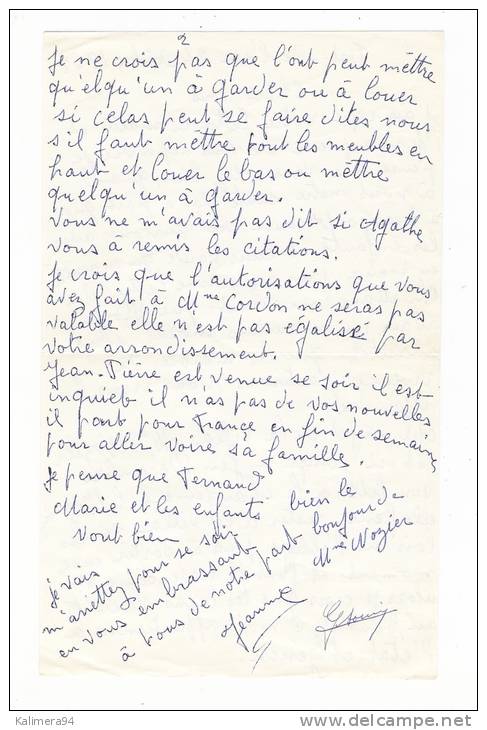 2
Je ne crois pas que l'ont peut mettre
qu'elqu'un à garder ou à louer
si celas peut se faire dites nous
s'il faut mettre tout les meubles en
haut et louer le bas ou mettre
quelqu'un à garder.
Vous ne m'avais pas dit si Agathe
vous à remis les citations.
Je crois que l'autorisations que vous
avez fait à Mme Cordon ne seras pas
valable elle n'est pas égalissé par
votre arrondissement.
Jean-Pièrre est venue se soir il est
inquieb il n'as pas de vos nouvelles
il part pour France en fin de semaine
pour aller voire s'à famille.
Je pense que Fernand
Marie et les enfants
vont bien
Je vais
m'arrettez pour se soir
en vous embrassant
à tous de notre part bonjour de
bien le
Mme Nozier
Jeanne
© Kalimera94
http://www.delcampe.net